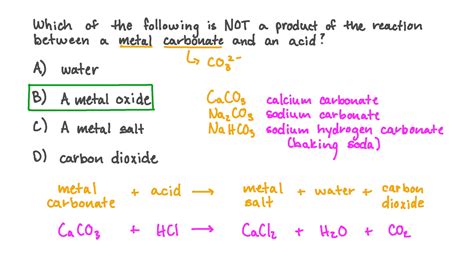 Which of the following is NOT a product of the reaction
between a metal carbonate and an acid?
CO₃²⁻
A) water
B) A metal oxide
C) A metal salt
D) carbon dioxide
CaCO₃ calcium carbonate
Na₂CO₃ sodium carbonate
NaHCO₃ sodium hydrogen carbonate
(baking soda)
metal carbonate + acid → metal salt + water + carbon dioxide
CaCO₃ + HCl → CaCl₂ + H₂O + CO₂